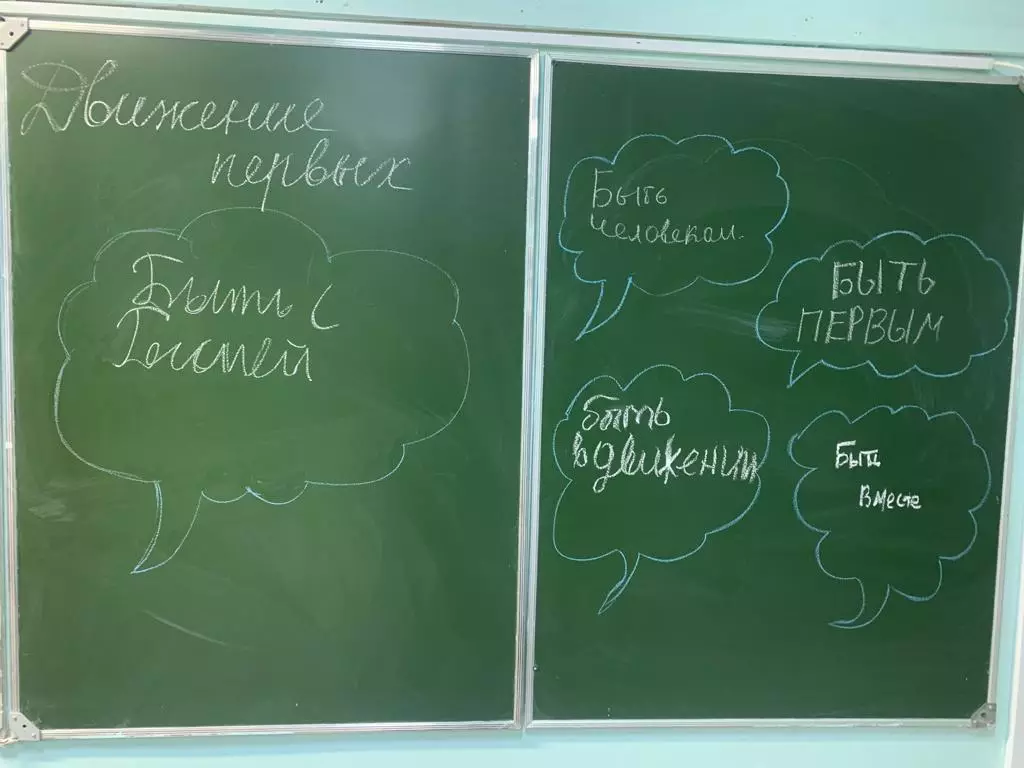 Движение
первых
Быть с
Россией
Быть
человеком.
БЫТЬ
ПЕРВЫМ
быть
в движении
Быть
вместе